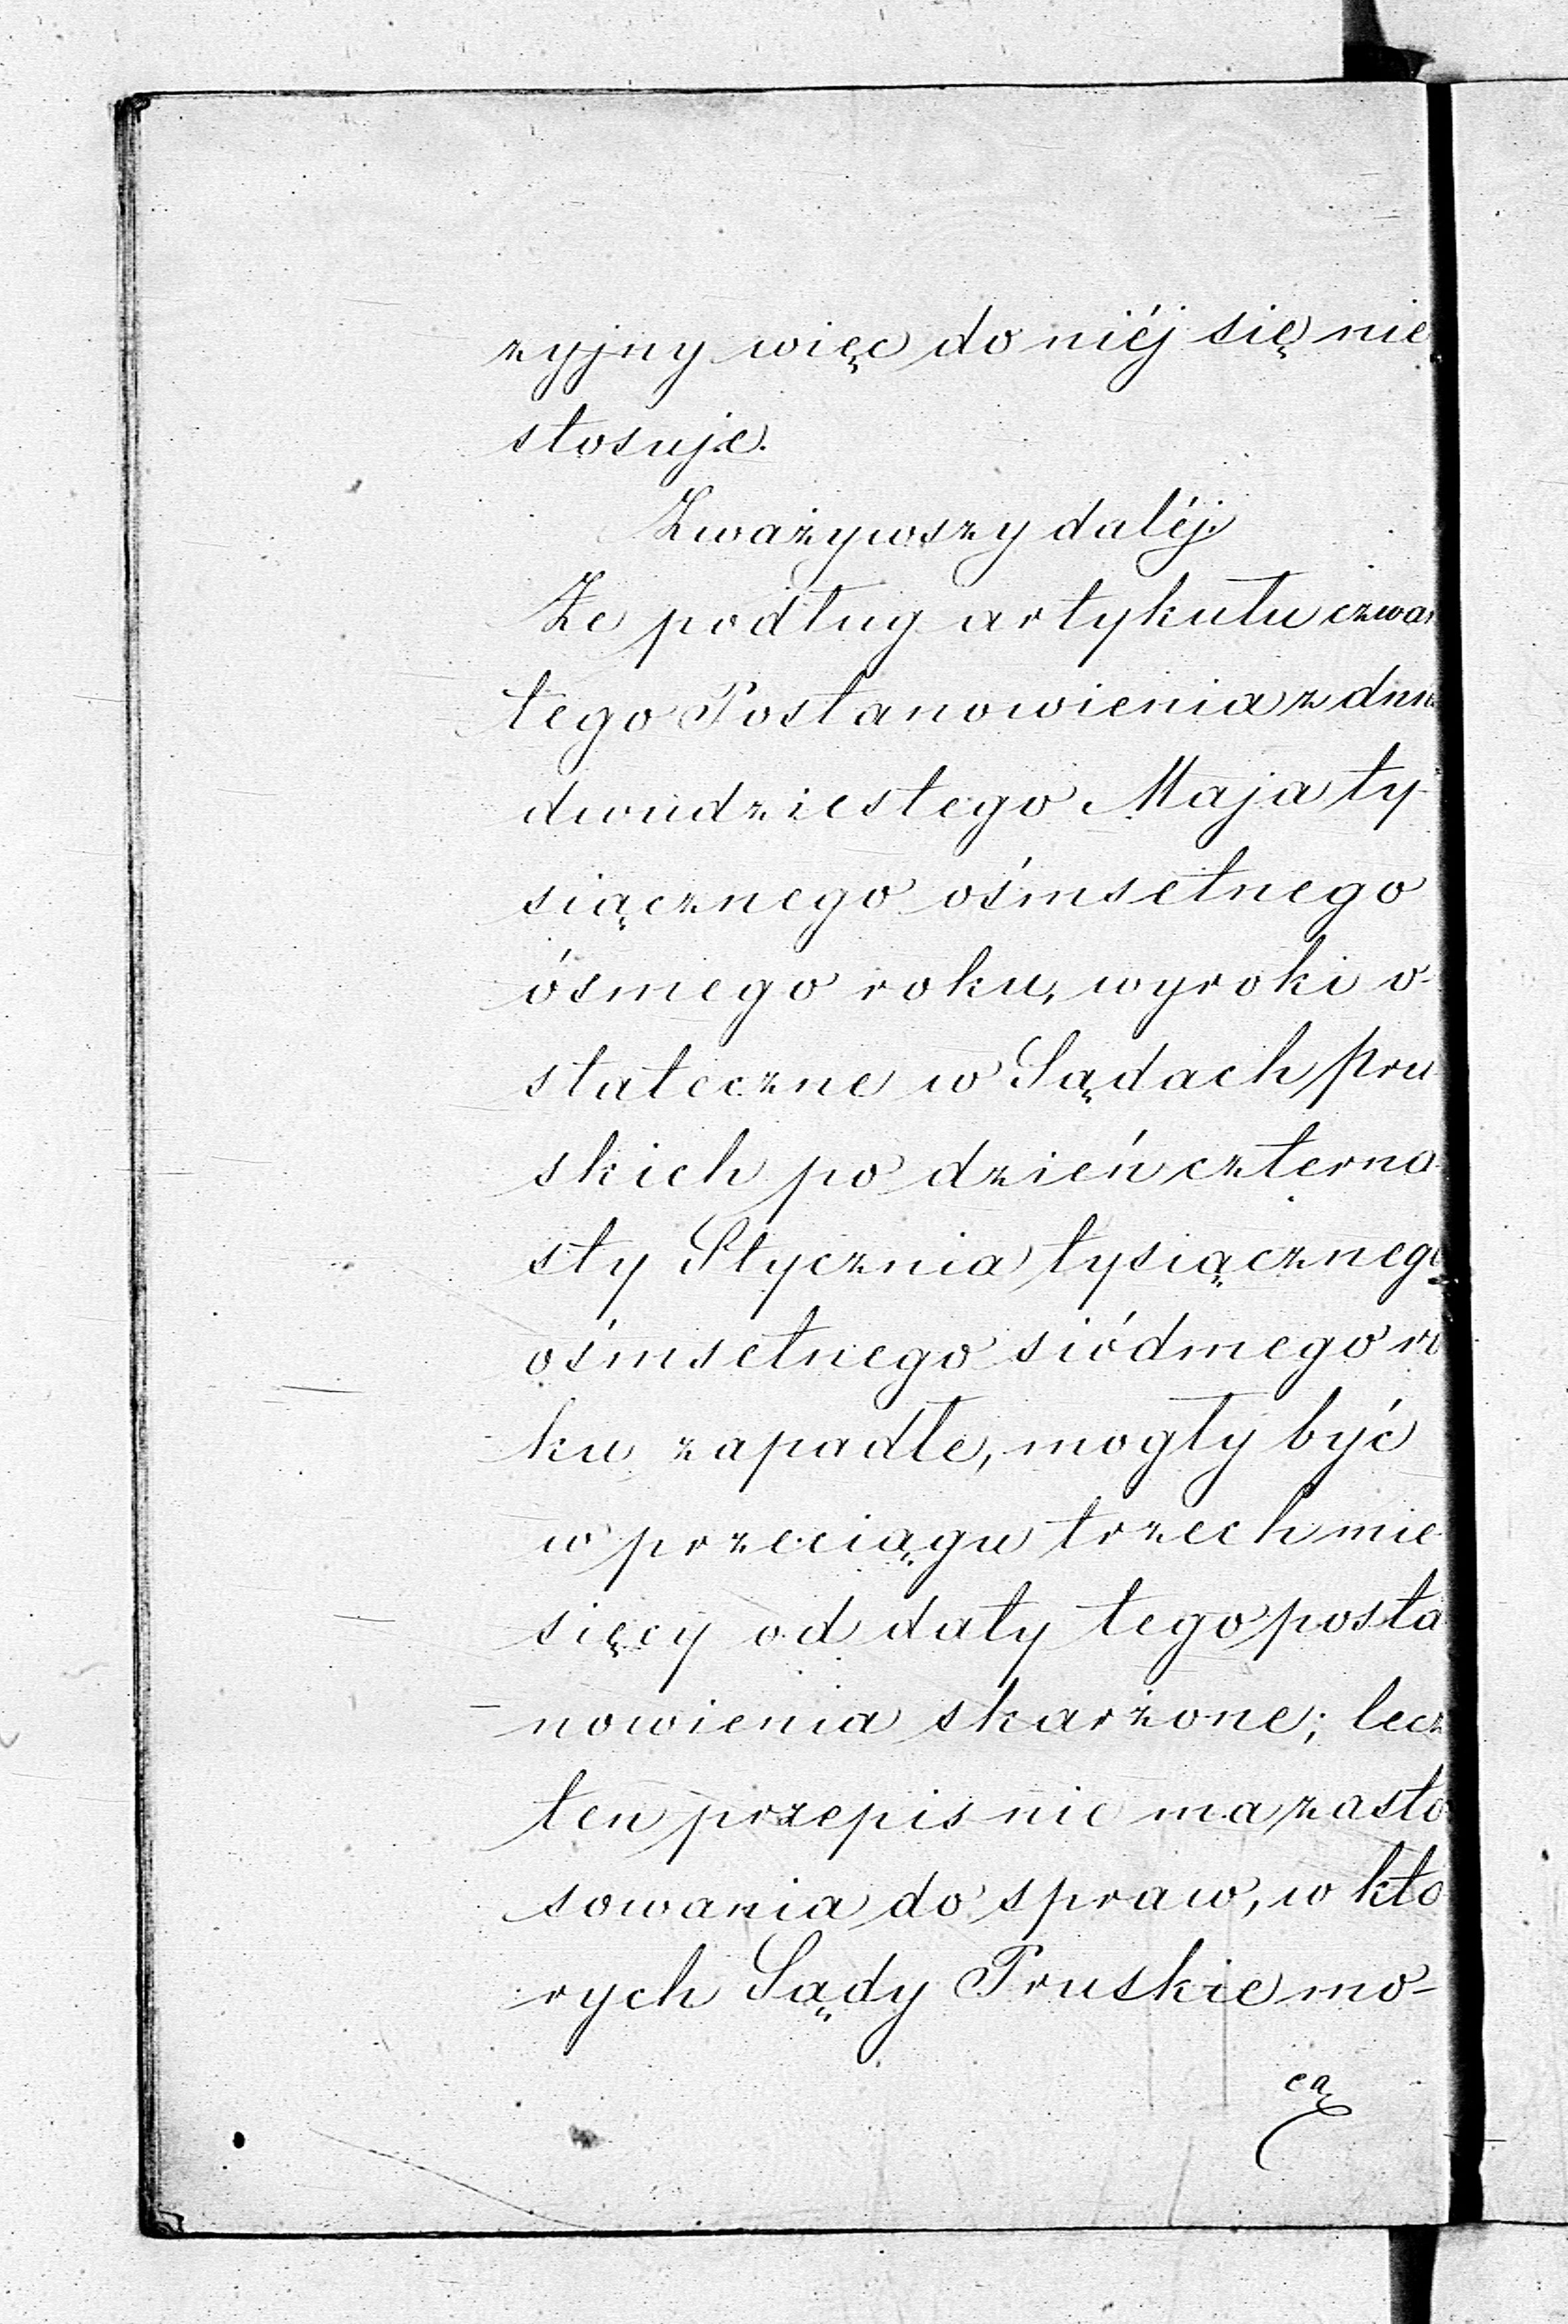 zyjny więc do niéj się nie
stosuje.
Zważywszy daléj
Że podług artykułu czwar
tego Postanowienia z dnia
dwudziestego Maja ty-
siącznego ośmsetnego
ósmego roku, wyroki o-
stateczne w Sądach pru
skich po dzień czterna
sty Stycznia tysiącznego
ośmsetnego siódmego ro
ku zapadłe, mogły być
w przeciągu trzech mie-
sięcy od daty tego posta
nowienia skarżone; lecz
ten przepis nie ma zasto
sowania do spraw, w któ
rych Sądy Pruskie mo-
cą